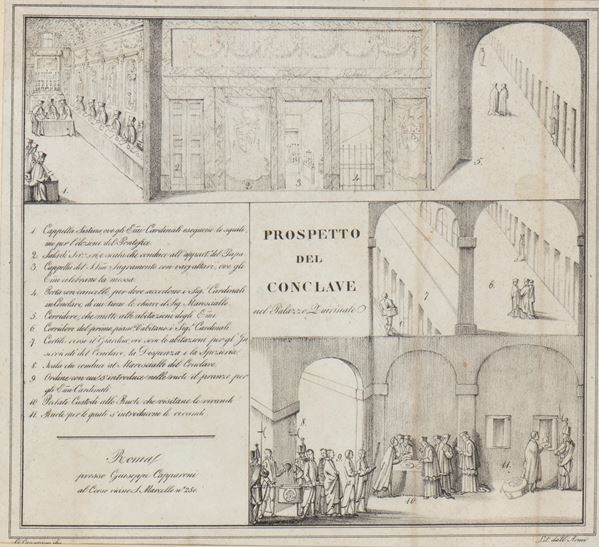 1 Cappella Sistina, ove gli Emi Cardinali eseguono lo squitti-
nio per l'elezione del Pontefice
2 Sala che conduce all' appart.to del Papa
3 Cappella del S.smo Sagramento con varj altari, ove gli
Emi celebrano la messa
4 Porta con cancello, per dove accedono i Sig.i Cardinali
in Conclave, di cui tiene le chiavi il Sig. Maresciallo
5 Corridore, che mette alle abitazioni degli Emi
6 Corridore del primo piano d'abitano i Sig.i Cardinali
7 Cortile verso il Giardino, ove son le abitazioni per gl' In-
servienti del Conclave, la Dogana e la Spezieria
8 Scala che conduce al Maresciallo del Conclave
9 Ordine con cui s'introduce nelle ruote il pranzo per
gli Emi Cardinali
10 Prelati Custodi alle Ruote che visitano le vivande
11 Ruote per le quali s'introducono le vivande
Roma
presso Giuseppe Capparoni
al Corso vicino S. Marcello n.° 251.
PROSPETTO
DEL
CONCLAVE
nel Palazzo Quirinale
1.
2.
2.
3
4
5.
7
6.
8.
10.
11.
Lit. dall' Armi